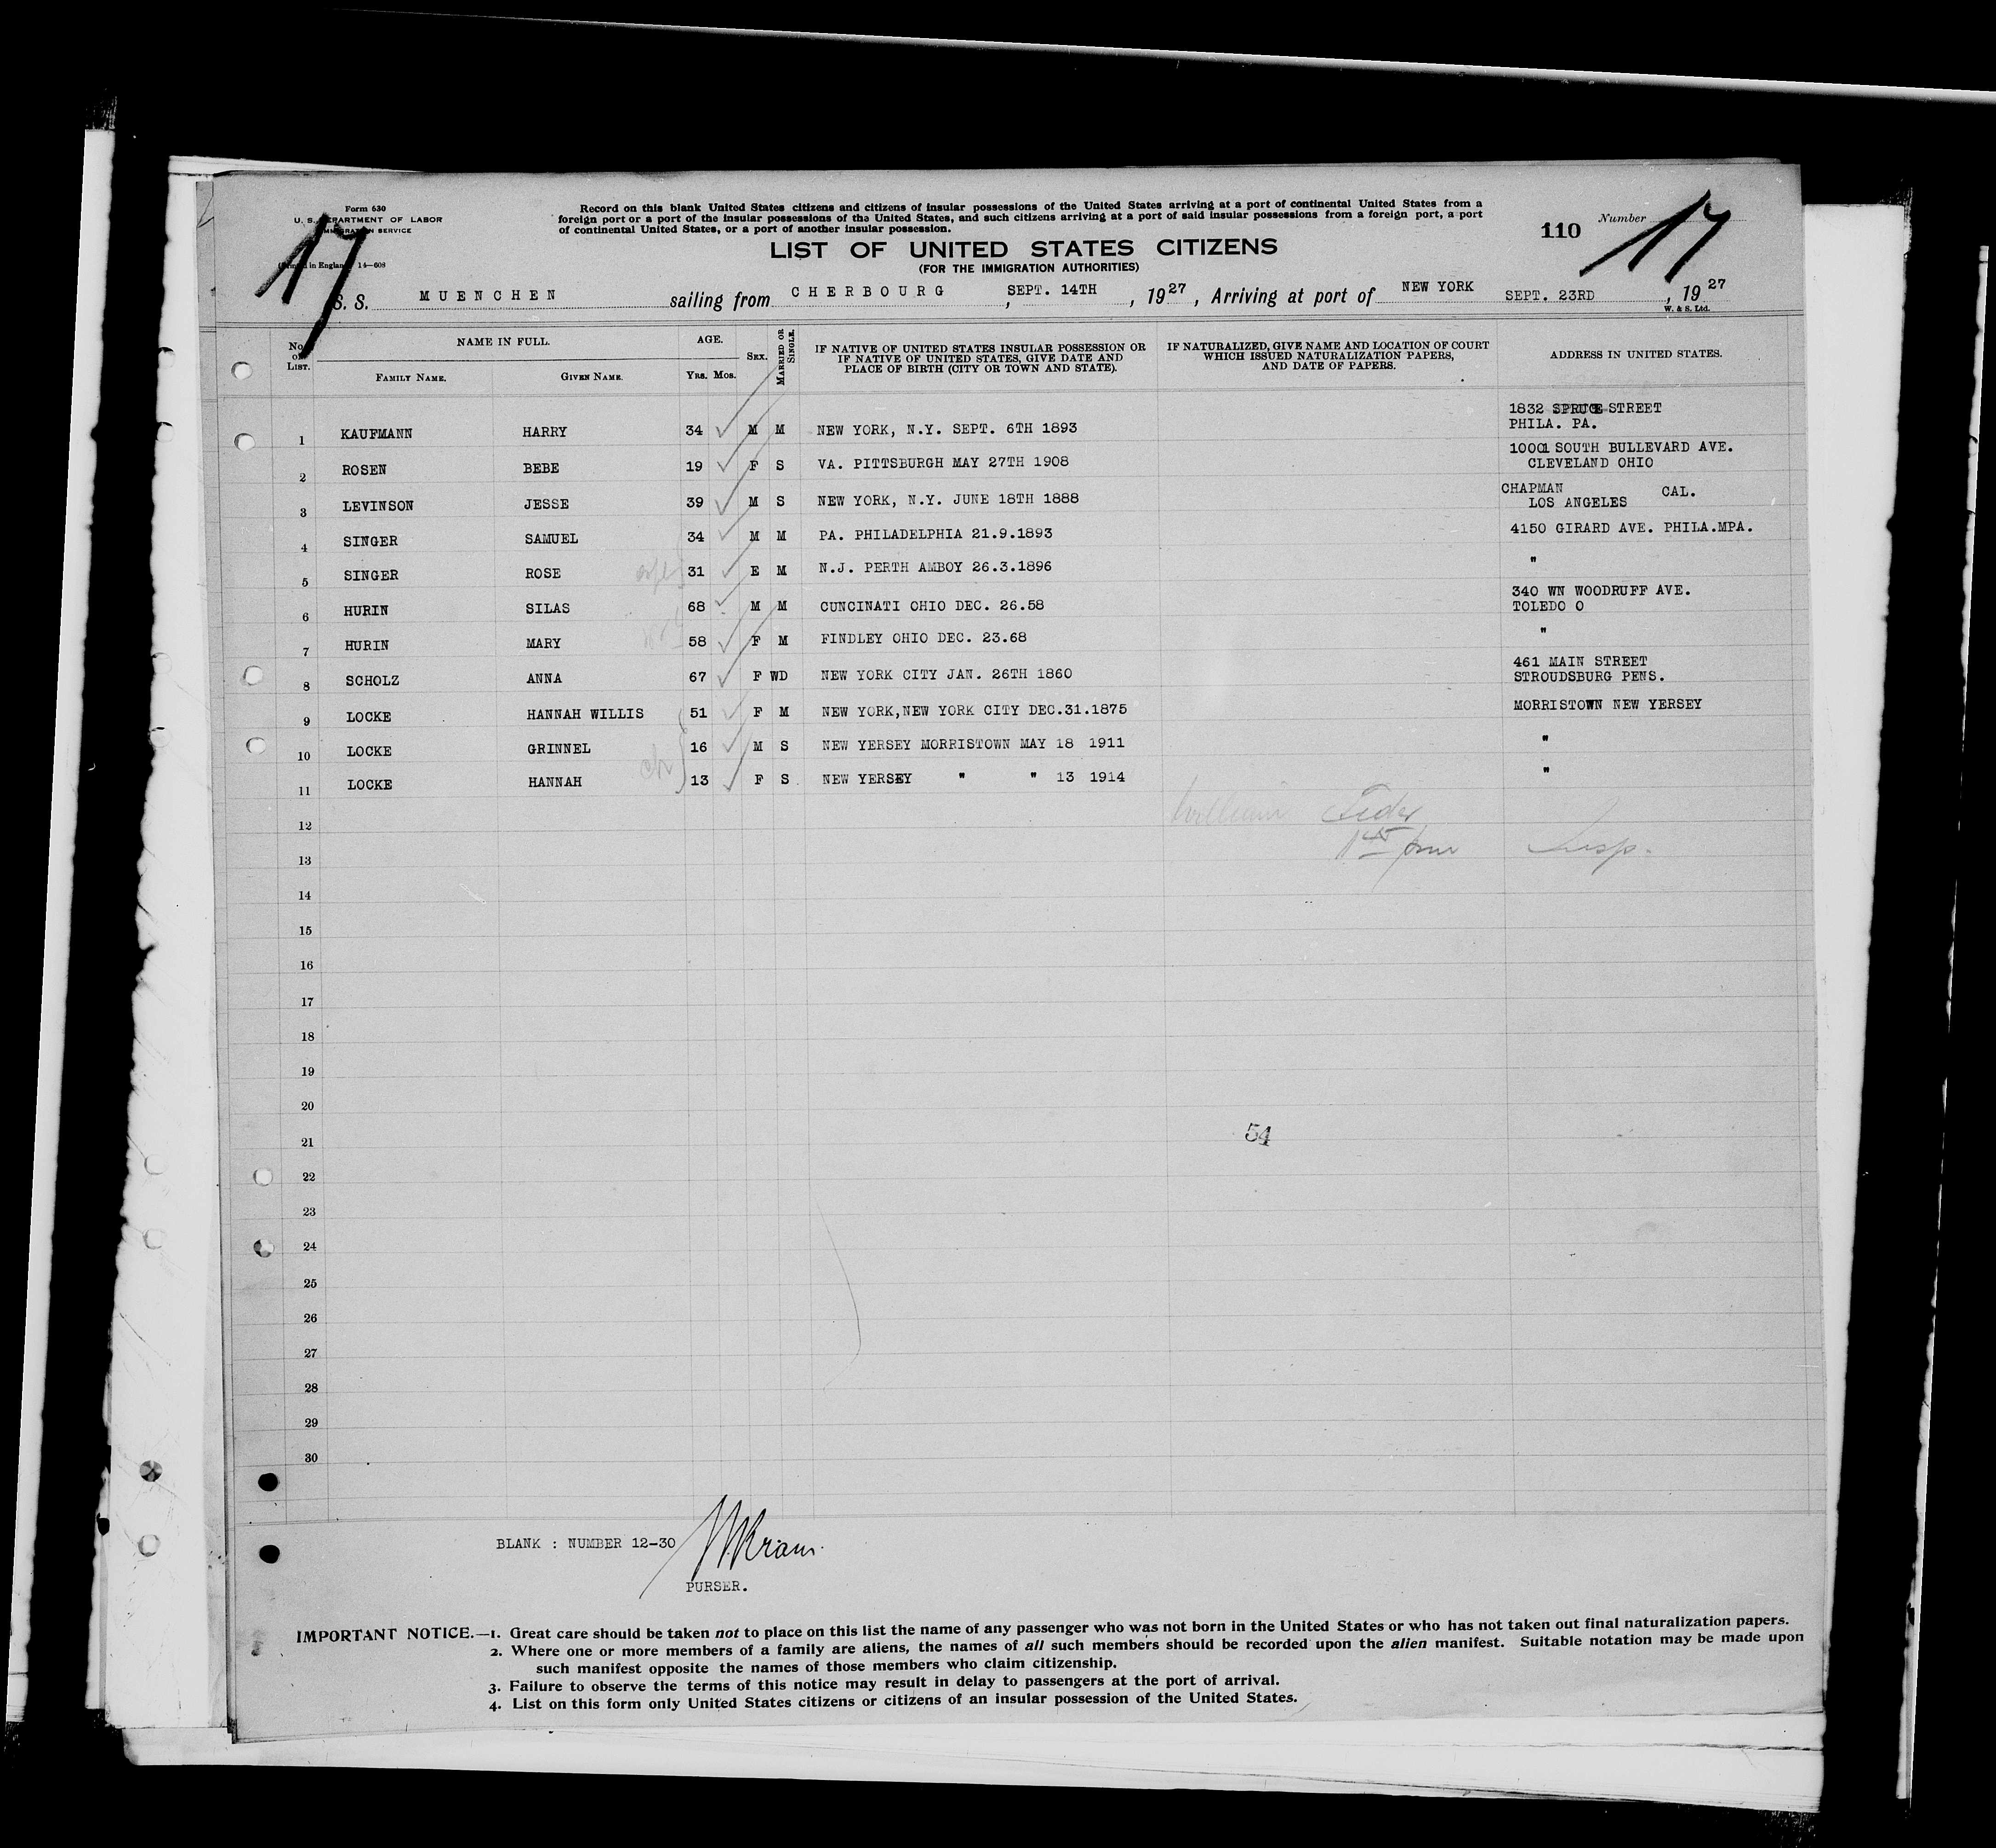 Form 630
U. S. DEPARTMENT OF LABOR
IMMIGRATION SERVICE
(Printed in England) 14—608
17
Record on this blank United States citizens and citizens of insular possessions of the United States arriving at a port of continental United States from a
foreign port or a port of the insular possessions of the United States, and such citizens arriving at a port of said insular possessions from a foreign port, a port
of continental United States, or a port of another insular possession.
110 Number 17
LIST OF UNITED STATES CITIZENS
(FOR THE IMMIGRATION AUTHORITIES)
S. S. MUENCHEN sailing from CHERBOURG , SEPT. 14TH , 1927 , Arriving at port of NEW YORK SEPT. 23RD , 1927
W. & S. Ltd.
No. on List. NAME IN FULL. AGE. Sex. Married or Single. IF NATIVE OF UNITED STATES INSULAR POSSESSION OR IF NATIVE OF UNITED STATES, GIVE DATE AND PLACE OF BIRTH (CITY OR TOWN AND STATE). IF NATURALIZED, GIVE NAME AND LOCATION OF COURT WHICH ISSUED NATURALIZATION PAPERS, AND DATE OF PAPERS. ADDRESS IN UNITED STATES.
Family Name. Given Name. Yrs. Mos.
1 KAUFMANN HARRY 34 M M NEW YORK, N.Y. SEPT. 6TH 1893 1832 SPRUCE STREET
PHILA. PA.
2 ROSEN BEBE 19 F S VA. PITTSBURGH MAY 27TH 1908 10001 SOUTH BULLEVARD AVE.
CLEVELAND OHIO
3 LEVINSON JESSE 39 M S NEW YORK, N.Y. JUNE 18TH 1888 CHAPMAN CAL.
LOS ANGELES
4 SINGER SAMUEL 34 M M PA. PHILADELPHIA 21.9.1893 4150 GIRARD AVE. PHILA.MPA.
5 SINGER ROSE 31 E M N.J. PERTH AMBOY 26.3.1896 "
6 HURIN SILAS 68 M M CUNCINATI OHIO DEC. 26.58 340 WN WOODRUFF AVE.
TOLEDO O
7 HURIN MARY 58 F M FINDLEY OHIO DEC. 23.68 "
8 SCHOLZ ANNA 67 F WD NEW YORK CITY JAN. 26TH 1860 461 MAIN STREET
STROUDSBURG PENS.
9 LOCKE HANNAH WILLIS 51 F M NEW YORK,NEW YORK CITY DEC.31.1875 MORRISTOWN NEW YERSEY
10 LOCKE GRINNEL 16 M S NEW YERSEY MORRISTOWN MAY 18 1911 "
11 LOCKE HANNAH 13 F S NEW YERSEY " " 13 1914 "
12 William
13 Insp.
14
15
16
17
18
19
20
21 54
22
23
24
25
26
27
28
29
30
BLANK : NUMBER 12-30
PURSER.
IMPORTANT NOTICE.—1. Great care should be taken not to place on this list the name of any passenger who was not born in the United States or who has not taken out final naturalization papers.
2. Where one or more members of a family are aliens, the names of all such members should be recorded upon the alien manifest. Suitable notation may be made upon
such manifest opposite the names of those members who claim citizenship.
3. Failure to observe the terms of this notice may result in delay to passengers at the port of arrival.
4. List on this form only United States citizens or citizens of an insular possession of the United States.